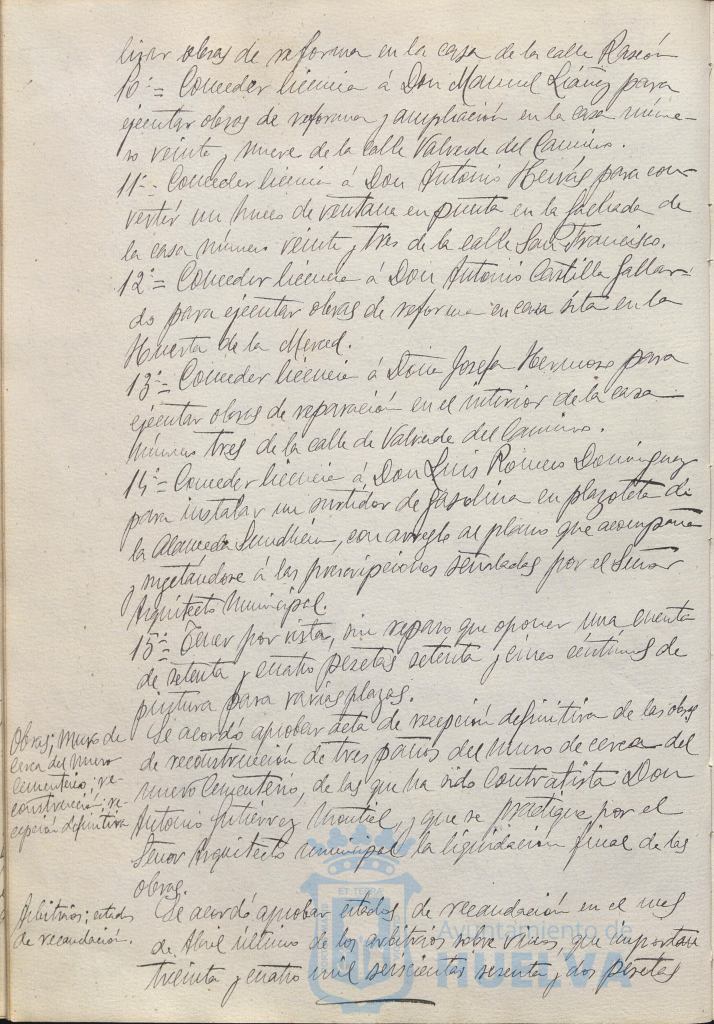 lizar obras de reforma en la casa de la calle Rascón
10ª= Conceder licencia á Don Manuel Liáñez para
ejecutar obras de reforma y ampliación en la casa núme-
ro veinte y nueve de la calle Valverde del Camino.
11ª- Conceder licencia á Don Antonio Hervás para con-
vertir un hueco de ventana en puerta en la fachada de
la casa número veinte y tres de la calle San Francisco.
12ª= Conceder licencia á Don Antonio Castilla Gallar-
do para ejecutar obras de reforma en casa sita en la
Huerta de la Merced.
13ª= Conceder licencia á Doña Josefa Hermoso para
ejecutar obras de reparación en el interior de la casa
número tres de la calle de Valverde del Camino.
14ª= Conceder licencia á Don Luis Romero Dominguez
para instalar un surtidor de gasolina en plazoleta de
la Alameda Sundheim, con arreglo al plano que acompaña
y sujetandose á las prescripciones señaladas por el Señor
Arquitecto Municipal.
15ª= Tener por vista, sin reparo que oponer una cuenta
de setenta y cuatro pesetas setenta y cinco céntimos de
pintura para varias plazas.
Obras; Muro de
cerca del nuevo
Cementerio; re-
construcción; re-
cepción definitiva
Se acordó aprobar acta de recepción definitiva de las obras
de reconstrucción de tres paños del muro de cerca del
nuevo Cementerio, de las que ha sido contratista Don
Antonio Gutiérrez Montiel, y que se practique por el
Señor Arquitecto municipal la liquidación final de las
obras.
Arbitrios; estados
de recaudación.
Se acordó aprobar estados de recaudación en el mes
de Abril último de los arbitrios sobre vinos, que importan
treinta y cuatro mil seiscientas sesenta y dos pesetas
Ayuntamiento de
HUELVA